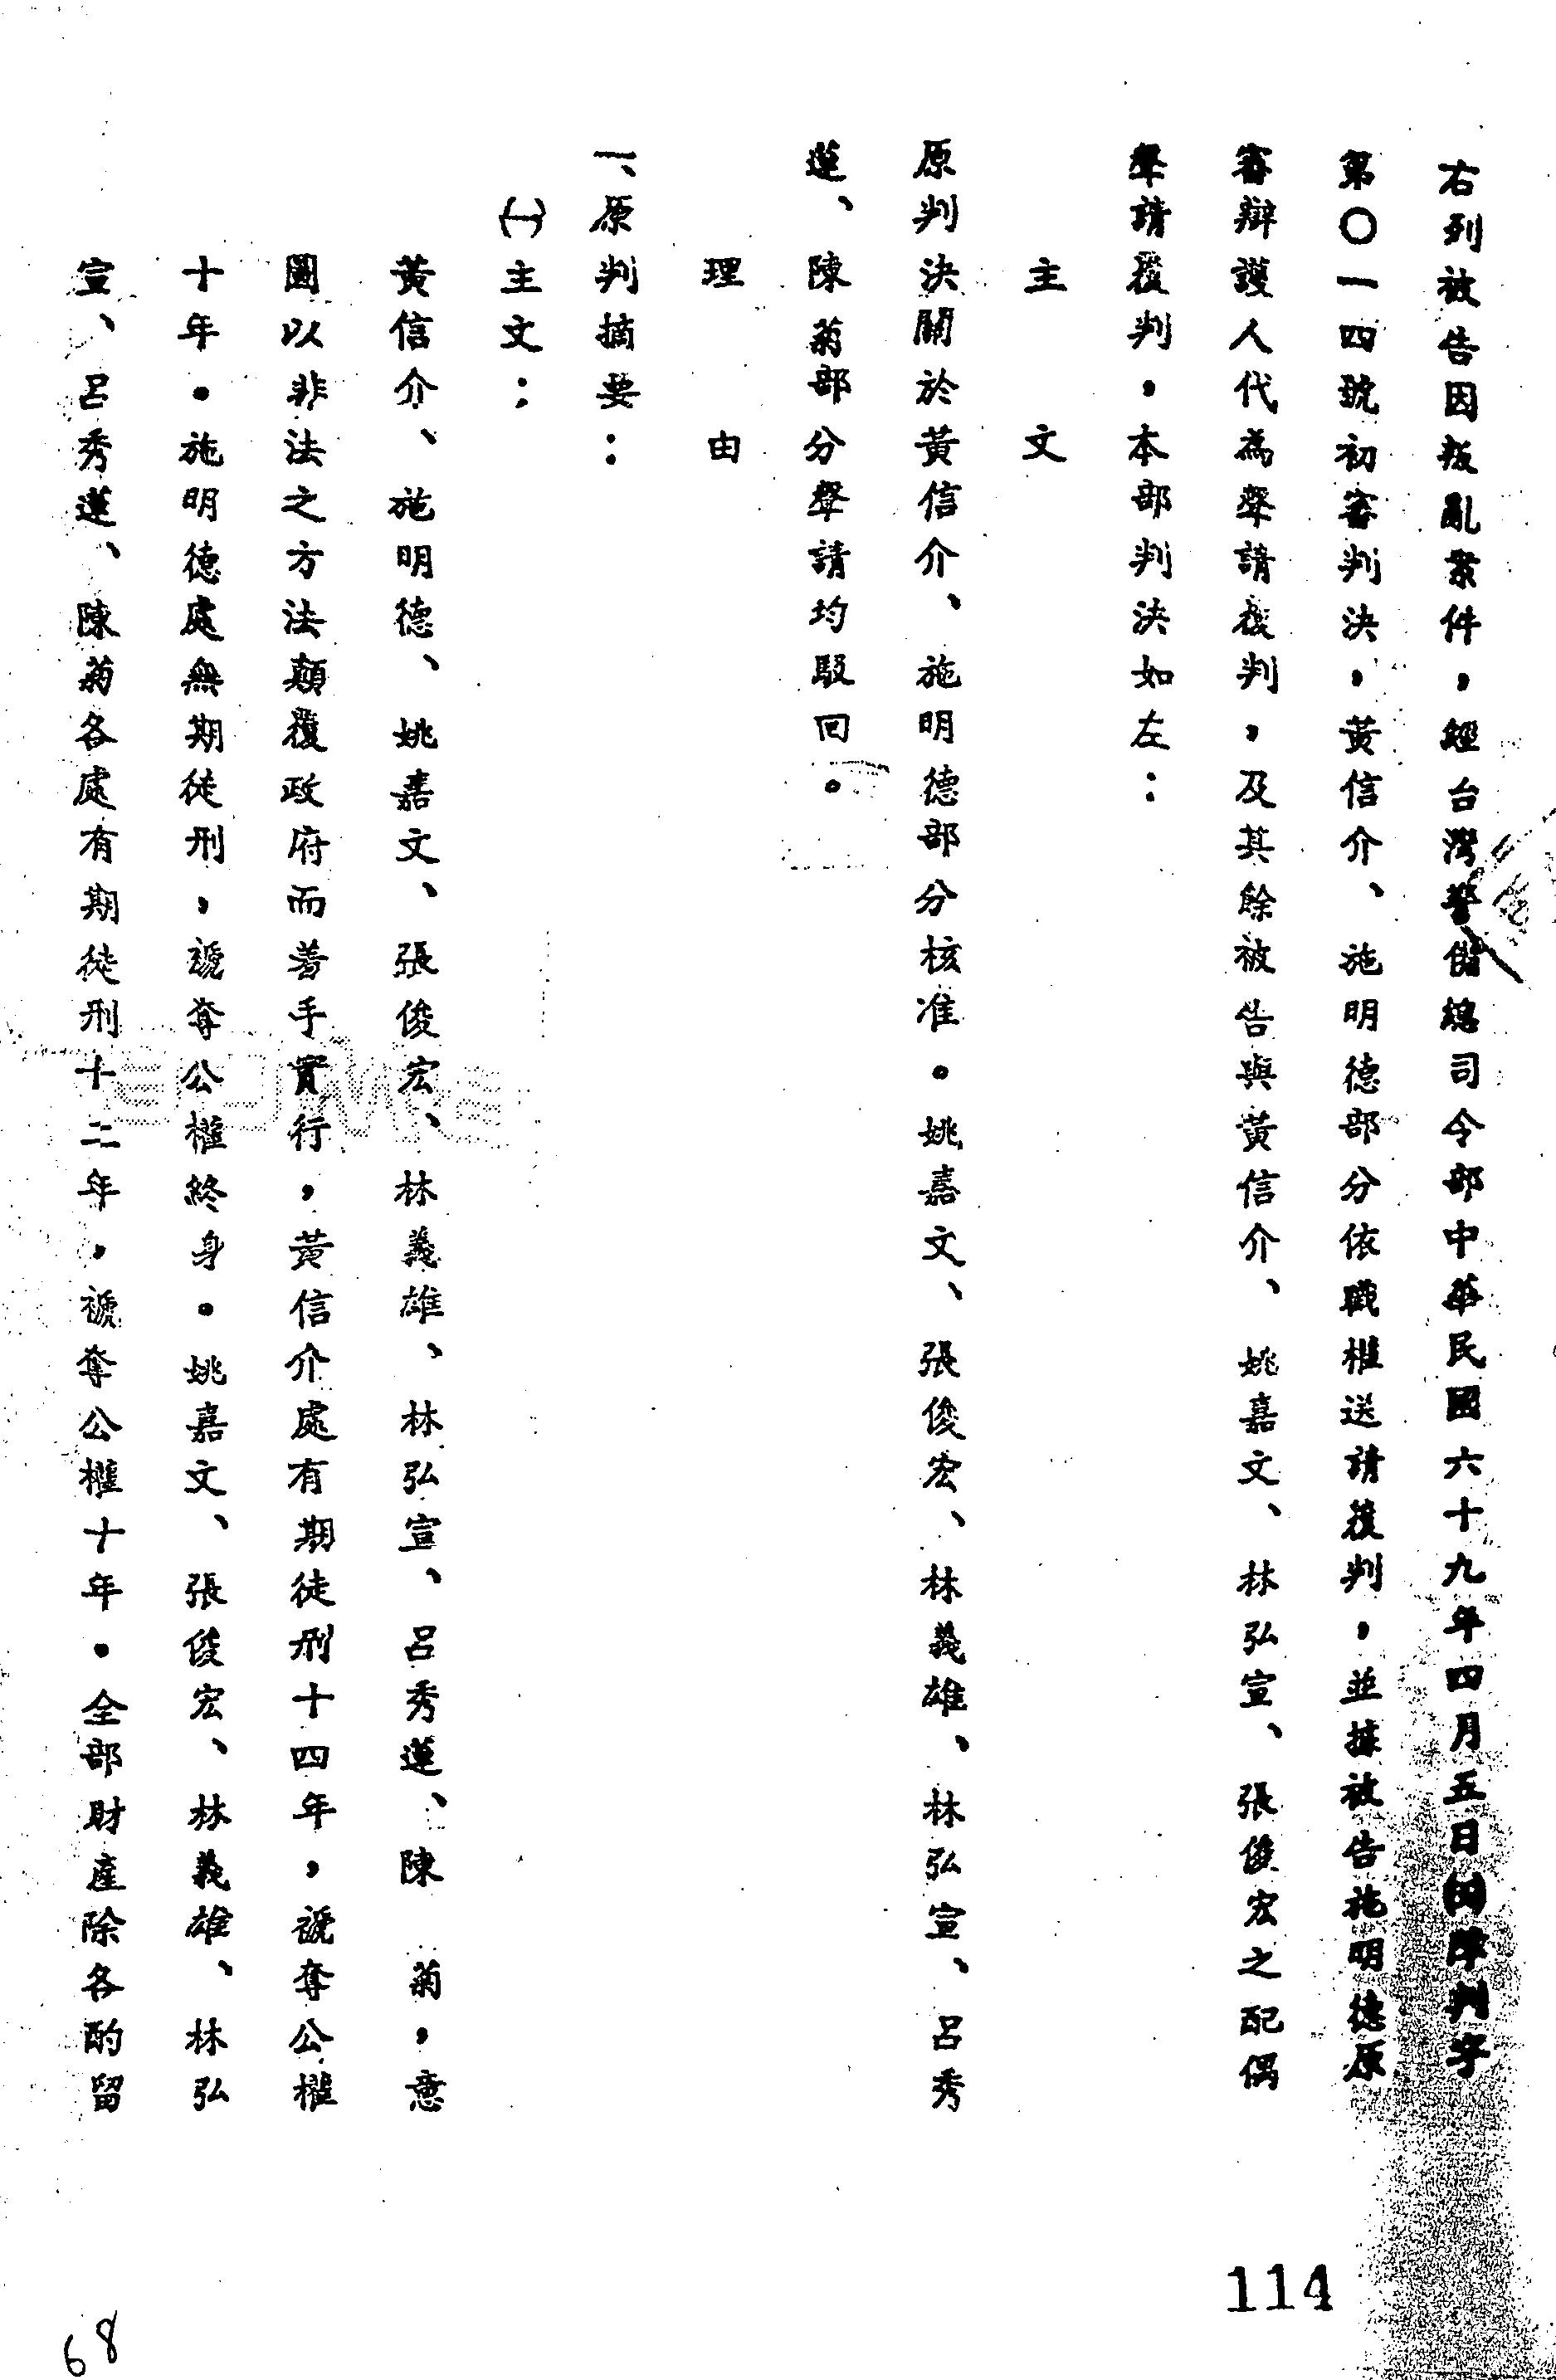 右列被告因叛亂案件，經台灣警備總司令部中華民國六十九年四月五日(69)障判字
第〇一四號初審判決，黃信介、施明德部分依職權送請覆判，並據被告施明德原
審辯護人代為聲請覆判，及其餘被告與黃信介、姚嘉文、林弘宣、張俊宏之配偶
聲請覆判，本部判決如左：
主文
原判決關於黃信介、施明德部分核准。姚嘉文、張俊宏、林義雄、林弘宣、呂秀
蓮、陳菊部分聲請均駁回。
理由
一、原判摘要：
㈠主文：
黃信介、施明德、姚嘉文、張俊宏、林義雄、林弘宣、呂秀蓮、陳菊，意
圖以非法之方法顛覆政府而着手實行，黃信介處有期徒刑十四年，褫奪公權
十年。施明德處無期徒刑，褫奪公權終身。姚嘉文、張俊宏、林義雄、林弘
宣、呂秀蓮、陳菊各處有期徒刑十二年，褫奪公權十年。全部財產除各酌留
114
68